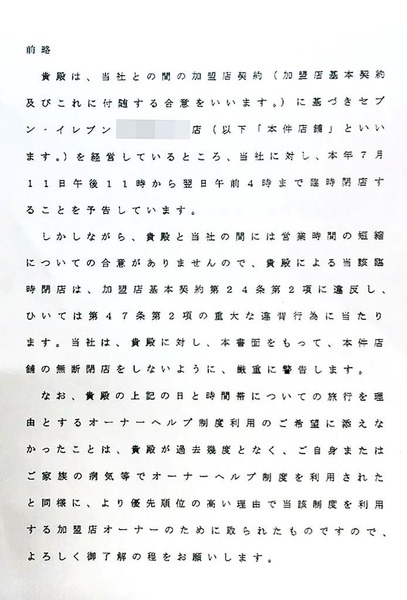 前略
　貴殿は、当社との間の加盟店契約（加盟店基本契約
及びこれに付随する合意をいいます。）に基づきセブ
ン・イレブン店（以下「本件店舗」といい
ます。）を経営しているところ、当社に対し、本年７月
１１日午後１１時から翌日午前４時まで臨時閉店す
ることを予告しています。
　しかしながら、貴殿と当社の間には営業時間の短縮
についての合意がありませんので、貴殿による当該臨
時閉店は、加盟店基本契約第２４条第２項に違反し、
ひいては第４７条第２項の重大な違背行為に当たり
ます。当社は、貴殿に対し、本書面をもって、本件店
舗の無断閉店をしないように、厳重に警告します。
　なお、貴殿の上記の日と時間帯についての旅行を理
由とするオーナーヘルプ制度利用のご希望に添えな
かったことは、貴殿が過去幾度となく、ご自身または
ご家族の病気等でオーナーヘルプ制度を利用された
と同様に、より優先順位の高い理由で当該制度を利用
する加盟店オーナーのために取られたものですので、
よろしく御了解の程をお願いします。